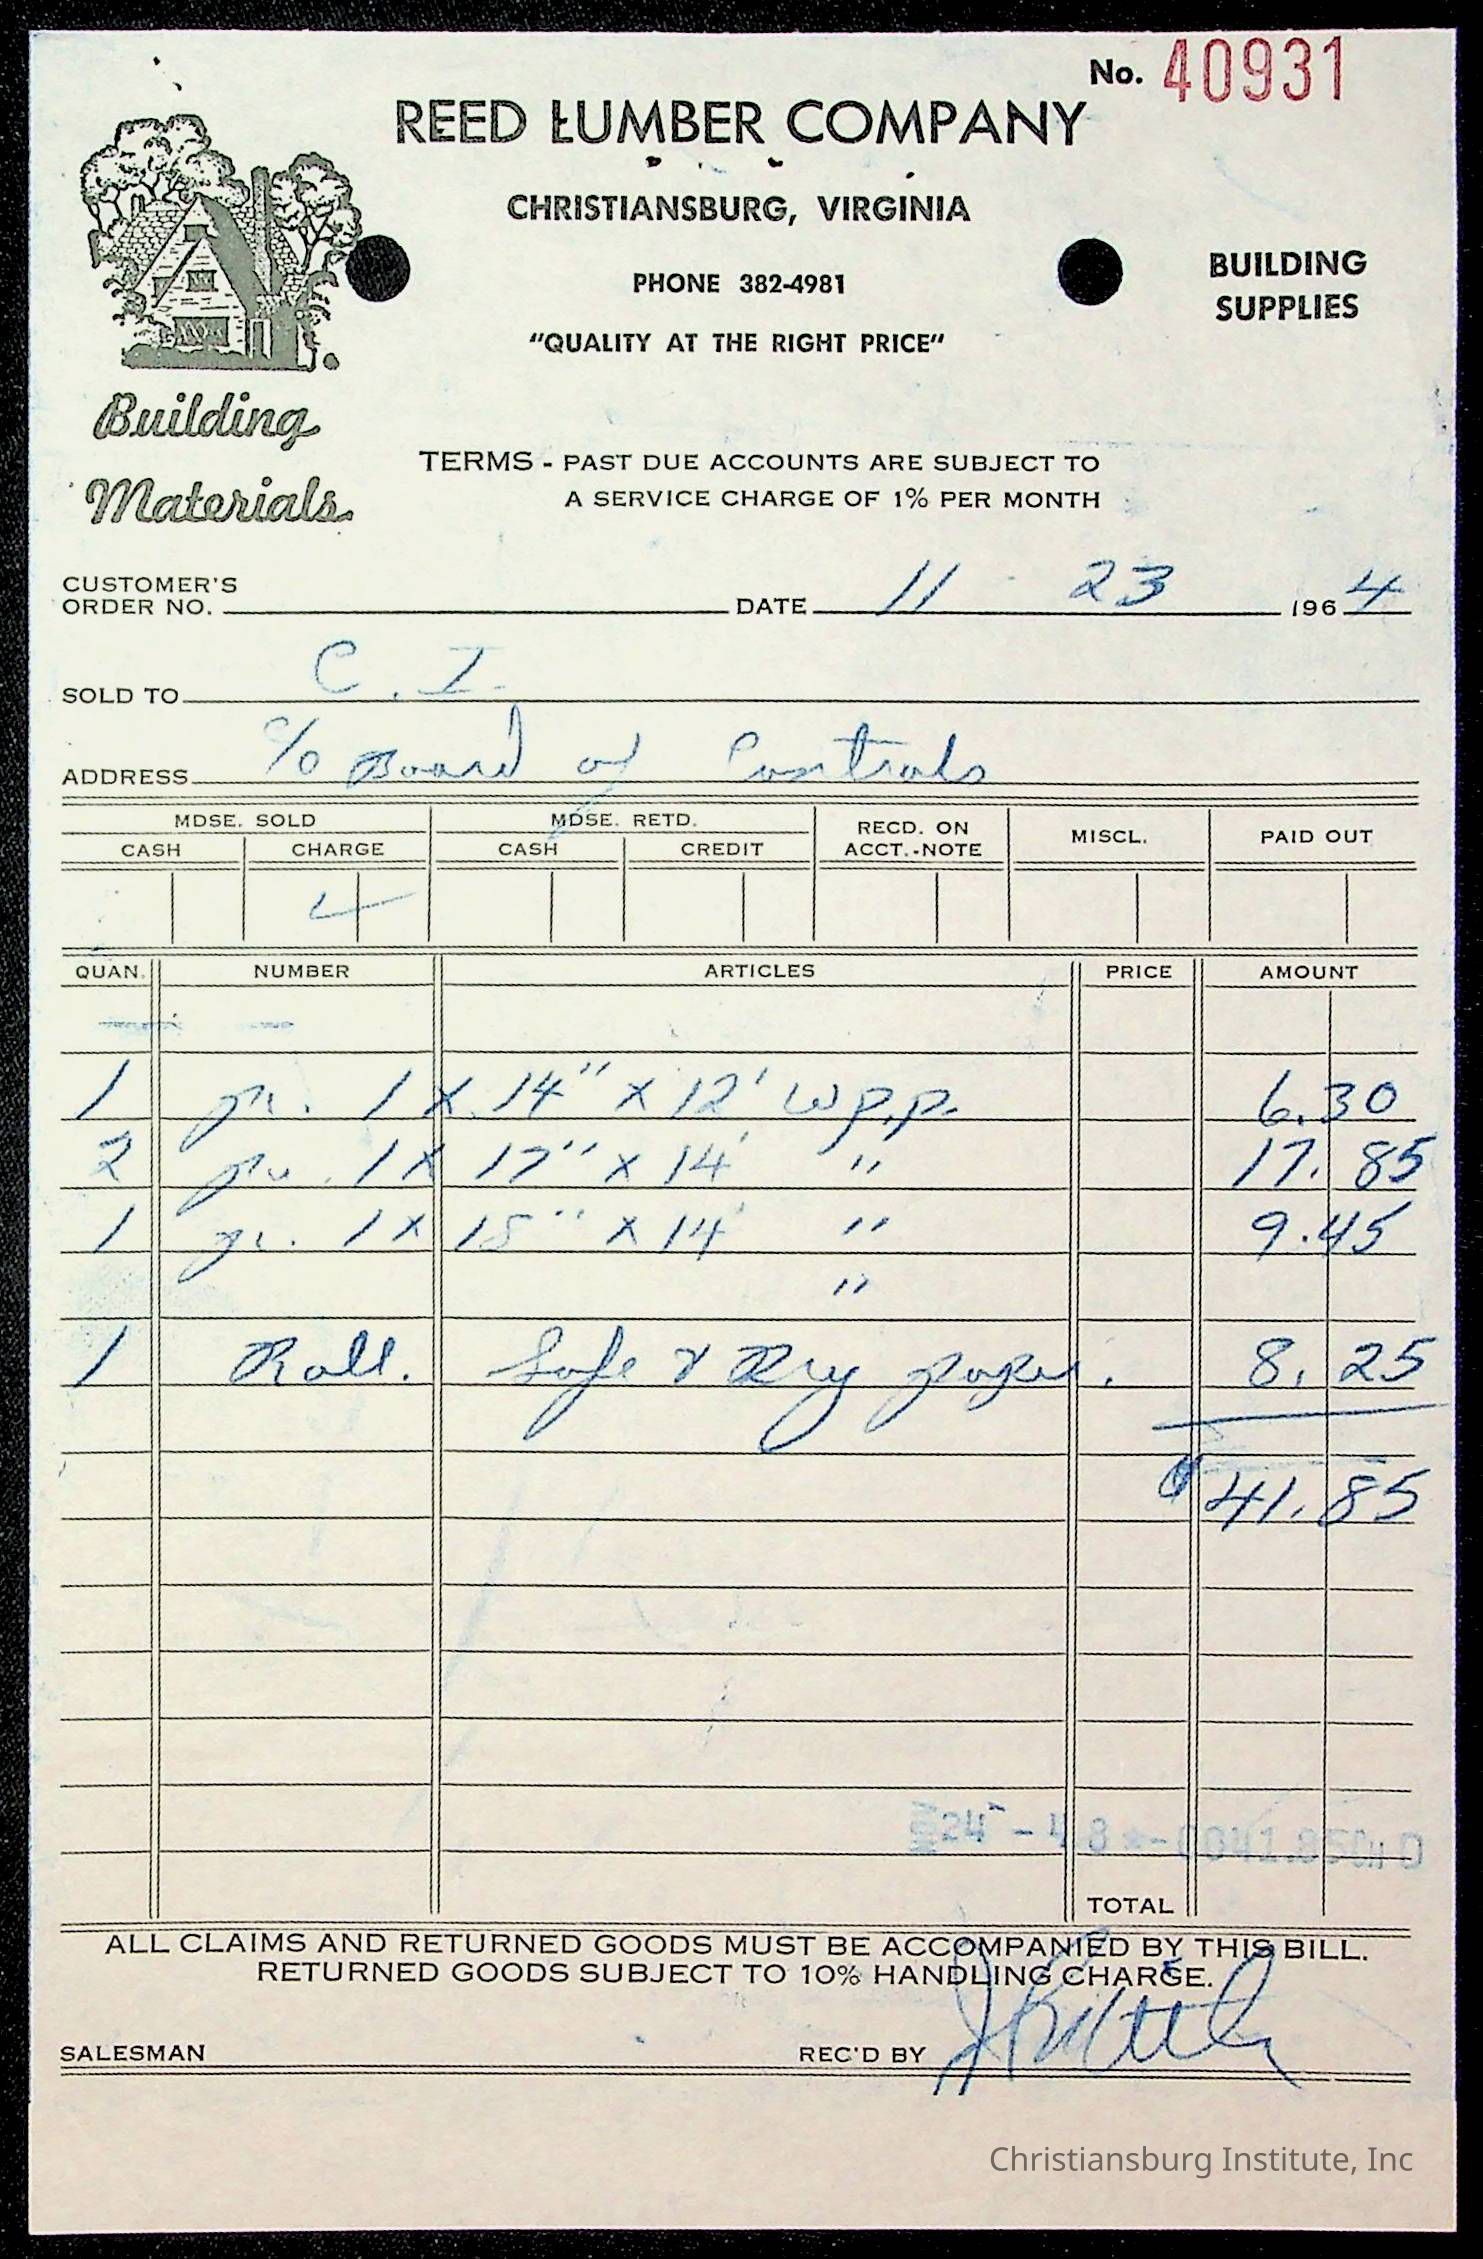 No. 40931
REED LUMBER COMPANY
CHRISTIANSBURG, VIRGINIA
PHONE 382-4981
"QUALITY AT THE RIGHT PRICE"
BUILDING
SUPPLIES
Building
Materials
TERMS - PAST DUE ACCOUNTS ARE SUBJECT TO
A SERVICE CHARGE OF 1% PER MONTH
CUSTOMER'S
ORDER NO. DATE 11 23 1964
SOLD TO C. I.
ADDRESS c/o Board of Controls
MDSE. SOLD MDSE. RETD. RECD. ON ACCT.-NOTE MISCL. PAID OUT
CASH CHARGE CASH CREDIT
QUAN. NUMBER ARTICLES PRICE AMOUNT
1 pc. 1 X 14" X 12' W p.p. 6.30
2 pc. 1 X 17" X 14' " 17.85
1 pc. 1 X 18" X 14' " 9.45
"
1 Roll. Safe & Dry paper. 8.25
$41.85
TOTAL
ALL CLAIMS AND RETURNED GOODS MUST BE ACCOMPANIED BY THIS BILL.
RETURNED GOODS SUBJECT TO 10% HANDLING CHARGE.
SALESMAN REC'D BY
Christiansburg Institute, Inc